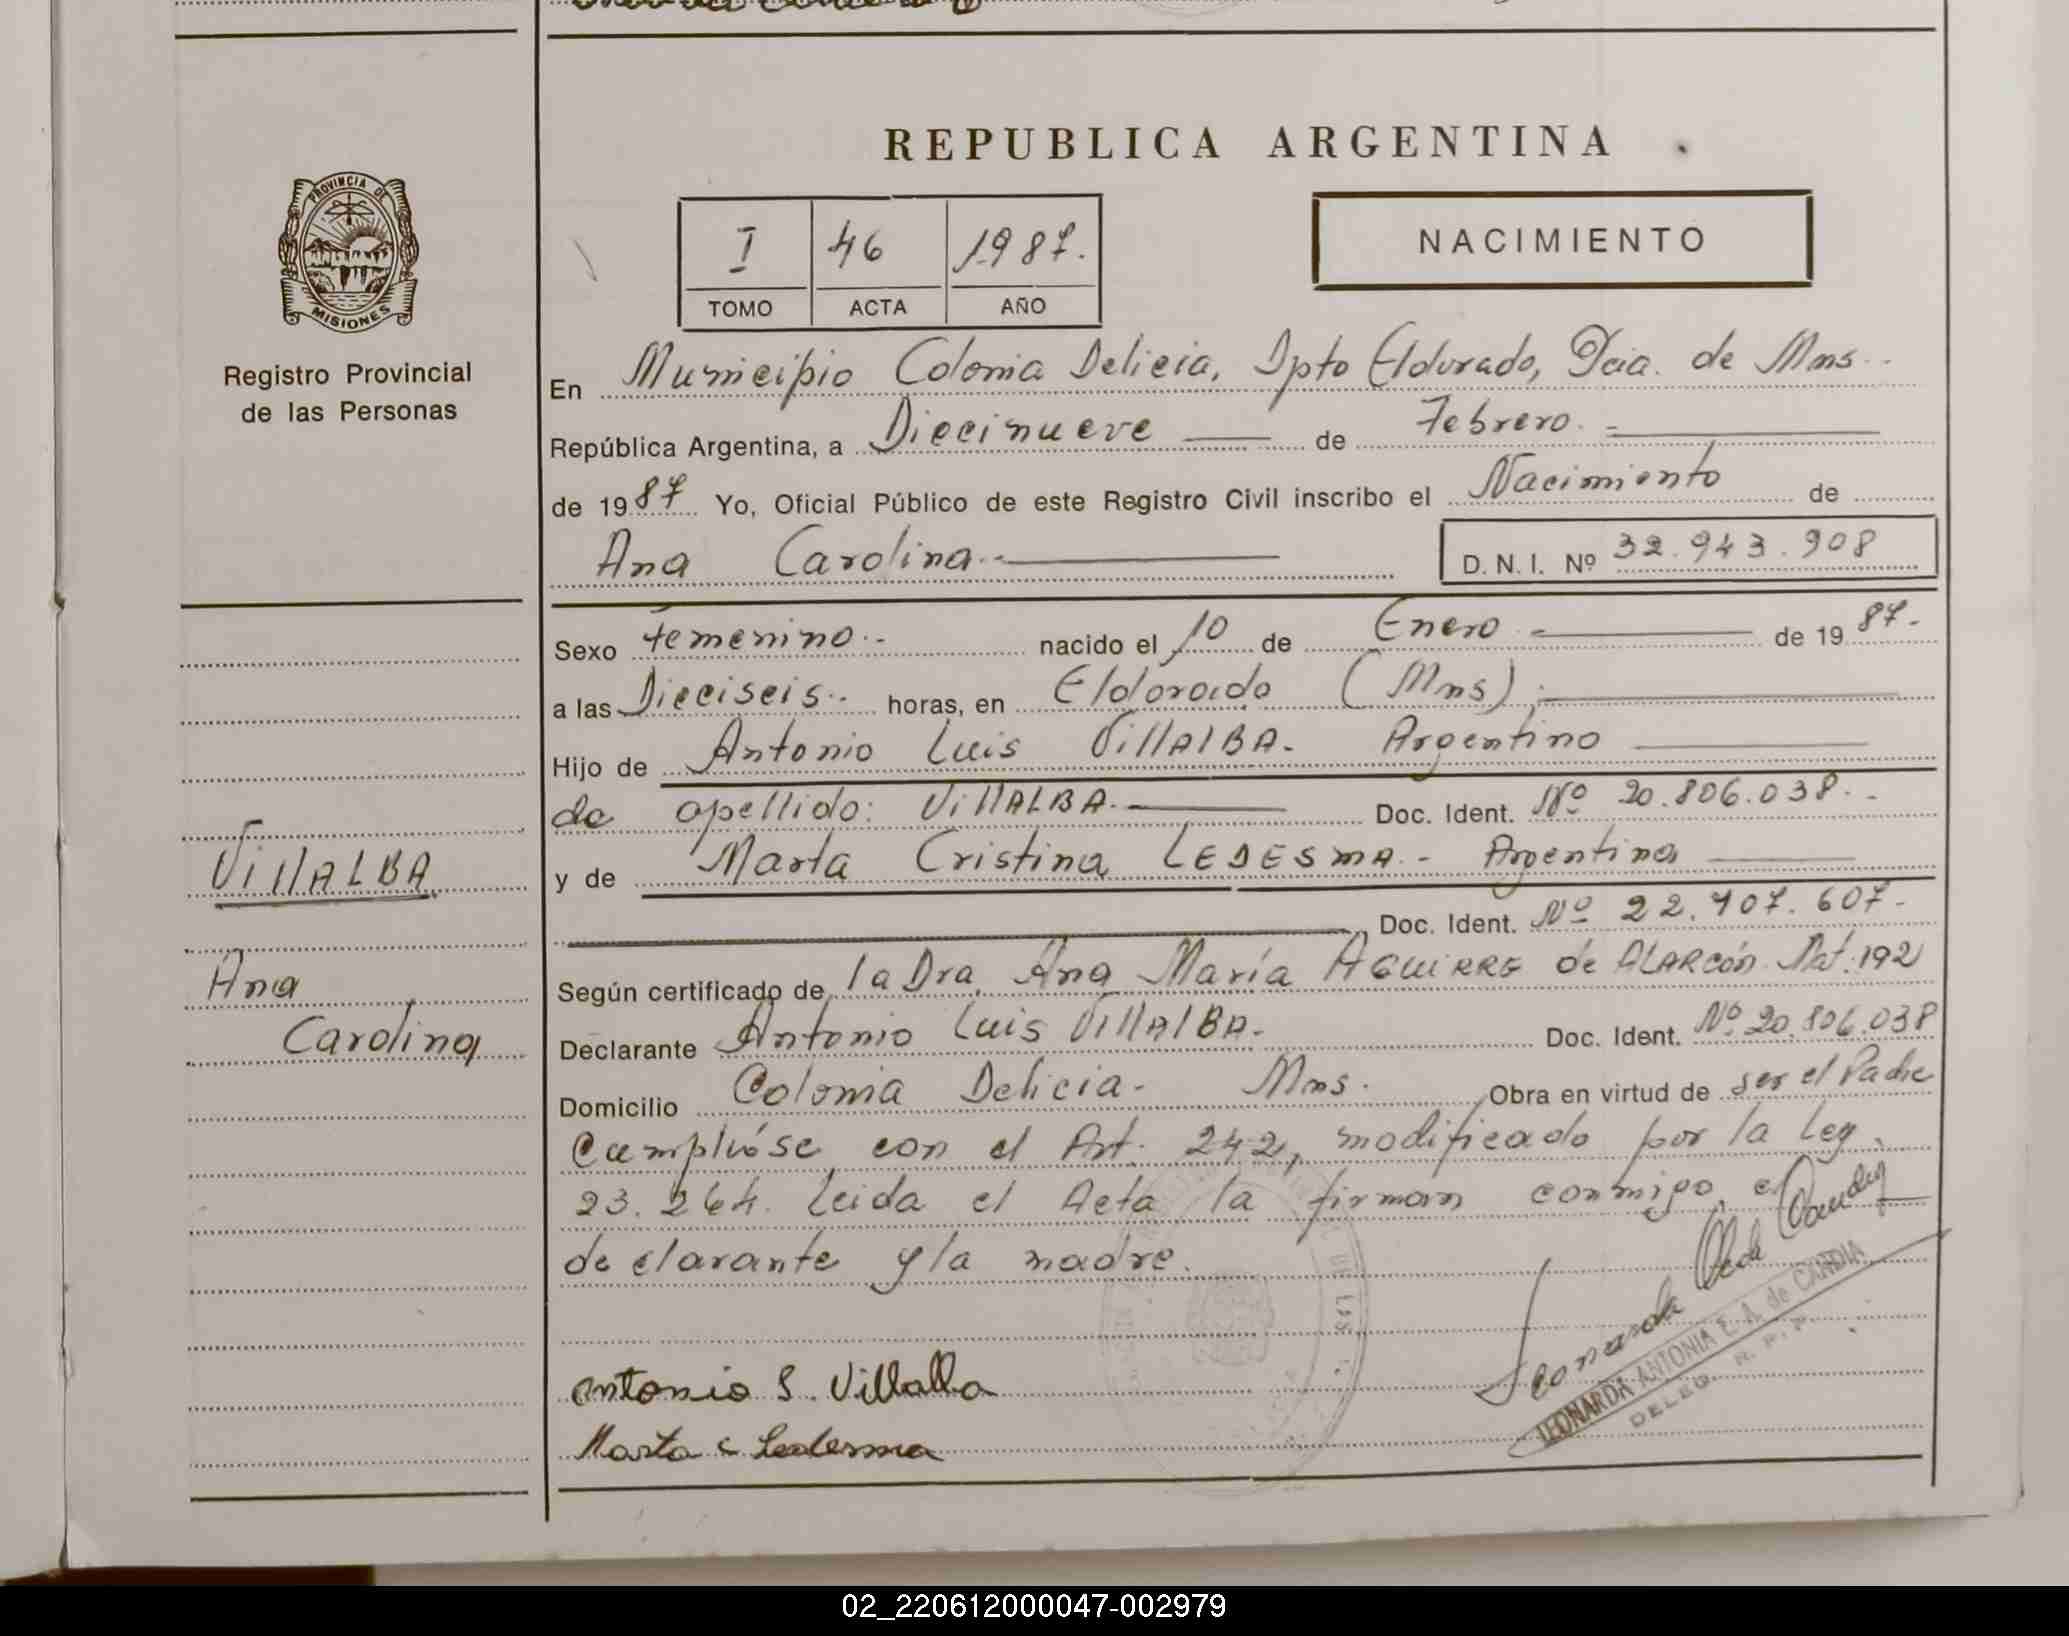 REPUBLICA ARGENTINA
PROVINCIA DE
MISIONES
Registro Provincial
de las Personas
I 46 1987.
TOMO ACTA AÑO
NACIMIENTO
En Municipio Colonia Delicia, Dpto Eldorado, Pcia. de Mns.
República Argentina, a Diecinueve de Febrero.
de 1987 Yo, Oficial Público de este Registro Civil inscribo el Nacimiento de
Ana Carolina.- D. N. I. Nº 32.943.908
Sexo femenino.- nacido el 10 de Enero de 1987.
a las Dieciseis.- horas, en Eldorado (Mns).
Hijo de Antonio Luis VillALBA. Argentino
de apellido: VillALBA. Doc. Ident. Nº 20.806.038.-
y de Marta Cristina LEDESMA.- Argentina
Doc. Ident. Nº 22.407.607.-
Según certificado de la Dra. Ana María AGUIRRE de ALARCón Mat. 192
Declarante Antonio Luis VillAlBA. Doc. Ident. Nº 20.806.038
Domicilio Colonia Delicia- Mns. Obra en virtud de ser el Padre
Cumplióse con el Art. 242, modificado por la Ley
23.264. Leida el Acta la firman conmigo, el
declarante y la madre.
VillALBA
Ana
Carolina
Antonio L. Villalba
Marta C Ledesma
Leonarda
LEONARDA ANTONIA E. A. de CANDIA
DELEG. R. P. P.
02_220612000047-002979